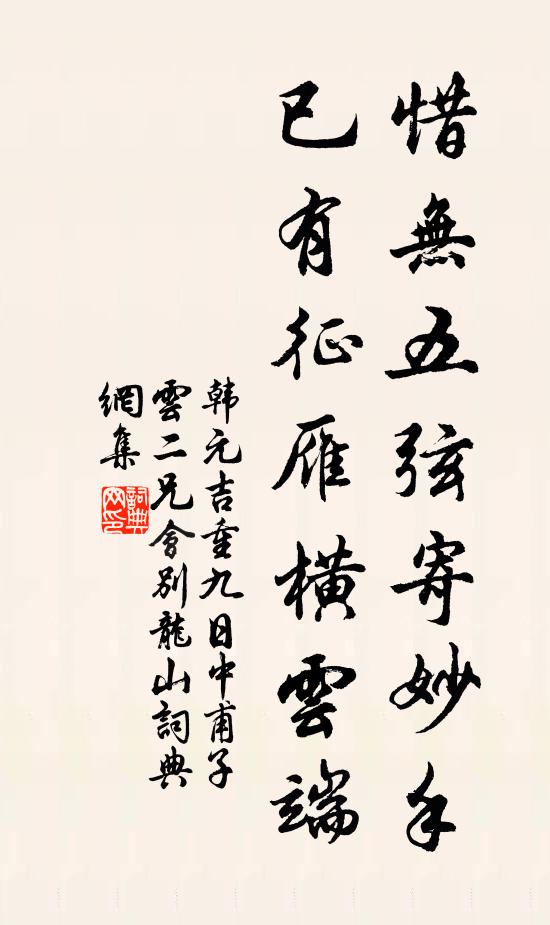 惜無五弦寄妙手
已有征雁橫雲端
韩元吉重九日中甫子
雲二兄會別龍山詞典
網集
詞典
网印